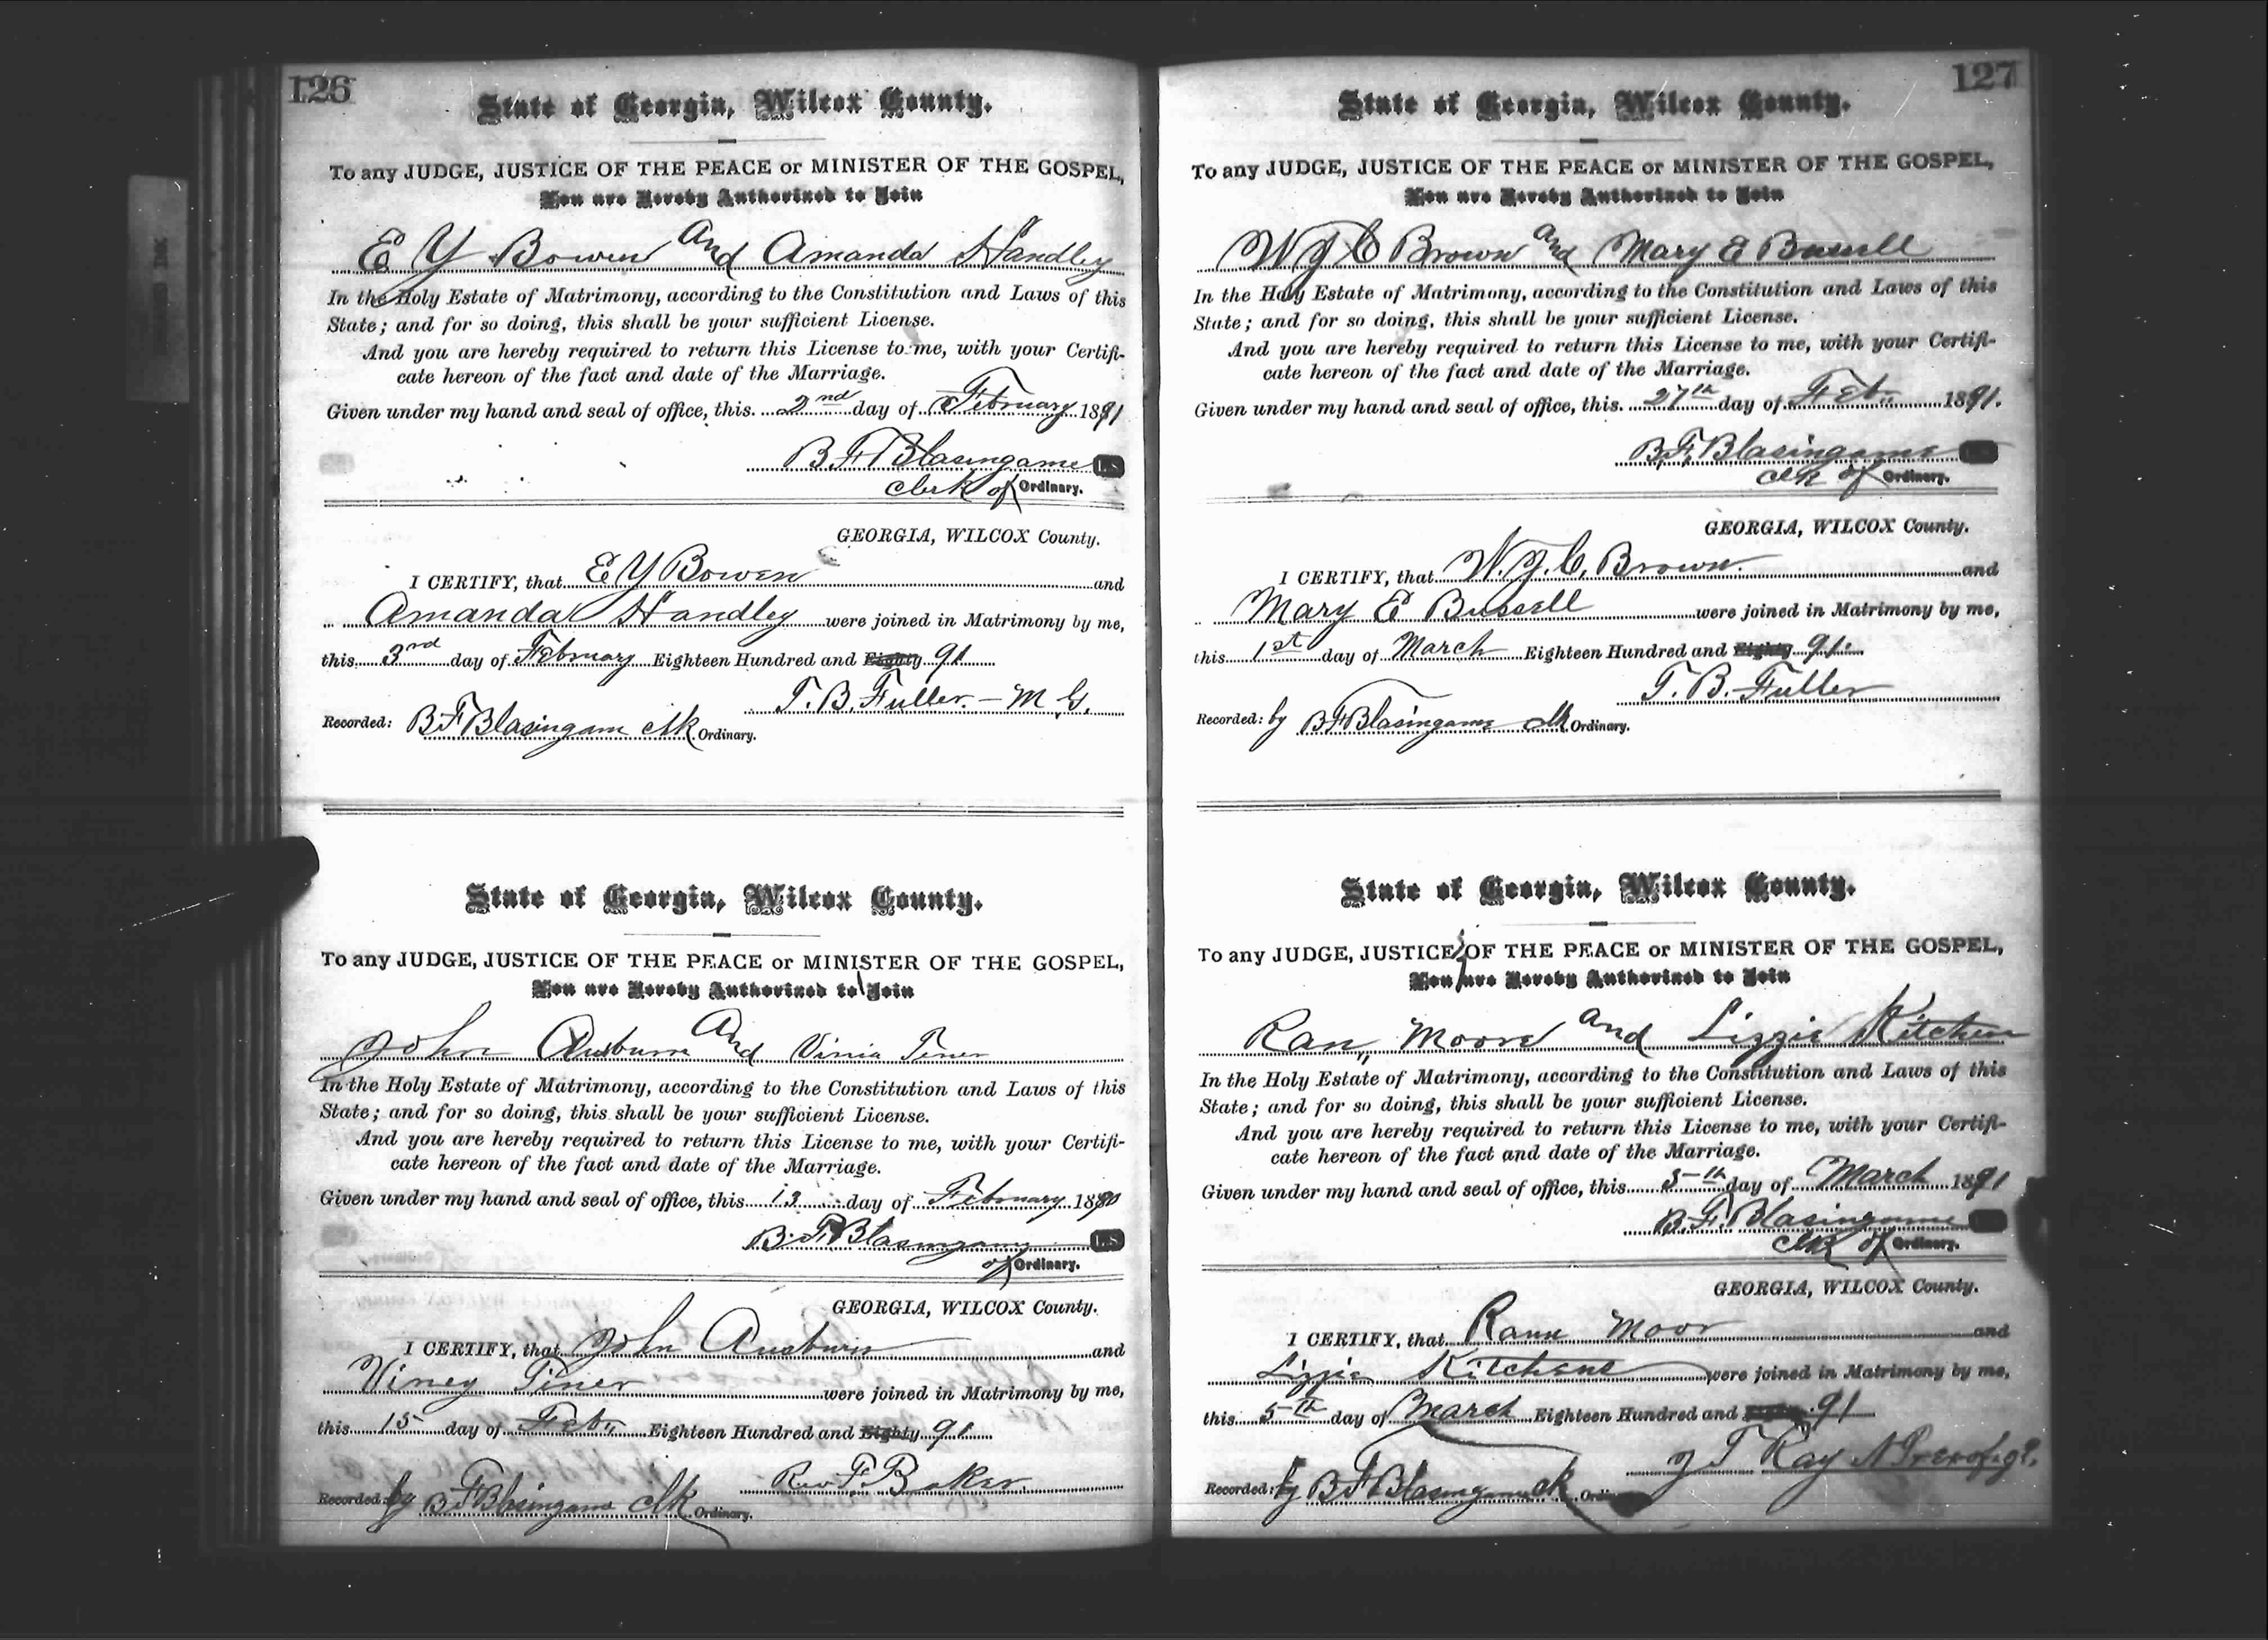 126
State of Georgia, Wilcox County.
To any JUDGE, JUSTICE OF THE PEACE or MINISTER OF THE GOSPEL,
You are Hereby Authorized to Join
E Y Bowen and Amanda Handley
In the Holy Estate of Matrimony, according to the Constitution and Laws of this
State; and for so doing, this shall be your sufficient License.
And you are hereby required to return this License to me, with your Certifi-
cate hereon of the fact and date of the Marriage.
Given under my hand and seal of office, this 2nd day of February 1891
B F Blasingame L.S.
Clerk of Ordinary.
GEORGIA, WILCOX County.
I CERTIFY, that E Y Bowen and
Amanda Handley were joined in Matrimony by me,
this 3rd day of February Eighteen Hundred and Eighty 91
T. B. Fuller. - M G.
Recorded: B F Blasingam Clk Ordinary.
State of Georgia, Wilcox County.
To any JUDGE, JUSTICE OF THE PEACE or MINISTER OF THE GOSPEL,
You are Hereby Authorized to Join
John Ausburn and Vinia Tiner
In the Holy Estate of Matrimony, according to the Constitution and Laws of this
State; and for so doing, this shall be your sufficient License.
And you are hereby required to return this License to me, with your Certifi-
cate hereon of the fact and date of the Marriage.
Given under my hand and seal of office, this 13 day of February 189
B. F. Blasingame L.S.
of Ordinary.
GEORGIA, WILCOX County.
I CERTIFY, that John Ausburn and
Viney Tiner were joined in Matrimony by me,
this 15 day of Feb. Eighteen Hundred and Eighty 91
Rev F. Baker
Recorded: by B F Blasingame Clk Ordinary.
127
State of Georgia, Wilcox County.
To any JUDGE, JUSTICE OF THE PEACE or MINISTER OF THE GOSPEL,
You are Hereby Authorized to Join
W J C Brown and Mary E Bussell
In the Holy Estate of Matrimony, according to the Constitution and Laws of this
State; and for so doing, this shall be your sufficient License.
And you are hereby required to return this License to me, with your Certifi-
cate hereon of the fact and date of the Marriage.
Given under my hand and seal of office, this 27th day of Feb. 1891.
B. F. Blasingame
Clk of Ordinary.
GEORGIA, WILCOX County.
I CERTIFY, that W. J. C. Brown. and
Mary E Bussell were joined in Matrimony by me,
this 1st day of March Eighteen Hundred and Eighty 91.
T. B. Fuller
Recorded: by B F Blasingame Clk Ordinary.
State of Georgia, Wilcox County.
To any JUDGE, JUSTICE OF THE PEACE or MINISTER OF THE GOSPEL,
You are Hereby Authorized to Join
Ran, Moore and Lizzie Kitchen
In the Holy Estate of Matrimony, according to the Constitution and Laws of this
State; and for so doing, this shall be your sufficient License.
And you are hereby required to return this License to me, with your Certifi-
cate hereon of the fact and date of the Marriage.
Given under my hand and seal of office, this 5th day of March 1891
B. F. Blasingame
Clk of Ordinary.
GEORGIA, WILCOX County.
I CERTIFY, that Rann Moor and
Lizzie Kitchens were joined in Matrimony by me,
this 5th day of March Eighteen Hundred and Eighty 91
J T Ray
Recorded: by B F Blasingame Clk Ordinary